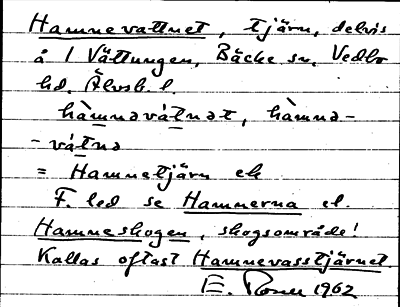 Hamnevattnet, tjärn, delvis
å 1 Vättungen, Bäcke sn, Vedbo
hd. Älvsb. l.
hàmnavátnət, hàmna-
-vátna
= Hamnetjärn ek
F. led se Hamnerna el.
Hamneskogen, skogsområde!
Kallas oftast Hamnevasstjärnet.
E. 1962